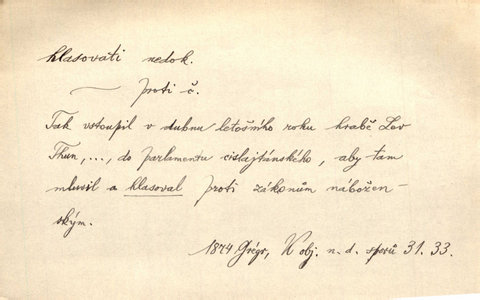 hlasovati nedok.
— proti č.
Tak vstoupil v dubnu letošního roku hrabě Lev
Thun, ..., do parlamentu cislajtánského, aby tam
mluvil a hlasoval proti zákonům nábožen-
ským.
1874 Grégr, K obj. n. d. sporů 31. 33.